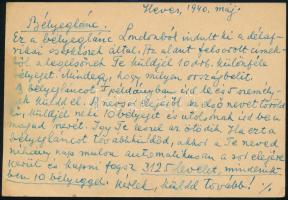 Heves, 1940. máj.
Bélyeglánc.
Ez a bélyeglánc Londonból indult ki a délaf-
rikai esőknek által. Az alant felsorolt címek-
ből a legelsőnek Te küldjél 10 drb. különféle
bélyeget. Mindegy, hogy milyen országbelit.
A bélyegláncot 1 példányban írd le és 5 személy-
nek küldd el. A névsor elejéről az első nevet töröld
ki, küldjél neki 10 bélyeget és utolsónak írd be a
magad nevét. Így Te leszel az ötödik. Ha ezt a
bélyegláncot továbbküldöd, akkor a Te neved
néhány nap mulva automatikusan a sor elejére
kerül és kapni fogsz 3125 levelet, mindenik-
ben 10 bélyeggel. Kérlek, küldd tovább! ./.